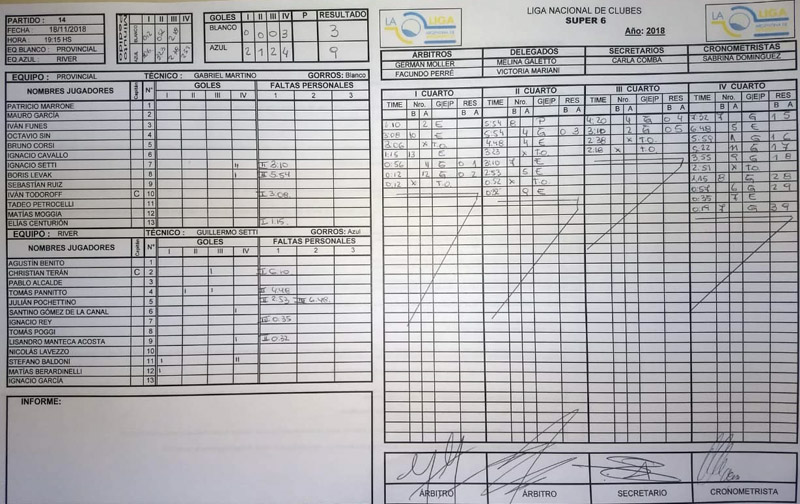 PARTIDO : 14
FECHA : 18/11/2018
HORA : 19:15 HS
EQ BLANCO : PROVINCIAL
EQ AZUL : RIVER
I II III IV
BLANCO
AZUL
GOLES I II III IV P RESULTADO
BLANCO 0 0 0 3 3
AZUL 2 1 2 4 9
LIGA NACIONAL DE CLUBES
SUPER 6
Año: 2018
LA LIGA
LA LIGA
ARBITROS DELEGADOS SECRETARIOS CRONOMETRISTAS
GERMÁN MOLLER MELINA GALETTO CARLA COMBA SABRINA DOMINGUEZ
FACUNDO PERRÉ VICTORIA MARIANI
EQUIPO : PROVINCIAL TÉCNICO : GABRIEL MARTINO GORROS: Blanco
NOMBRES JUGADORES Capitán N° GOLES FALTAS PERSONALES
I II III IV 1 2 3
PATRICIO MARRONE 1
MAURO GARCÍA 2
IVÁN FUNES 3
OCTAVIO SIN 4
BRUNO CORSI 5
IGNACIO CAVALLO 6
IGNACIO SETTI 7 II 3.10
BORIS LEVAK 8 II 5.54
SEBASTIÁN RUIZ 9
IVÁN TODOROFF C 10 I 3.08
TADEO PETROCELLI 11
MATÍAS MOGGIA 12
ELÍAS CENTURIÓN 13 I 1.15
EQUIPO : RIVER TÉCNICO : GUILLERMO SETTI GORROS: Azul
NOMBRES JUGADORES Capitán N° GOLES FALTAS PERSONALES
I II III IV 1 2 3
AGUSTÍN BENITO 1
CHRISTIAN TERÁN C 2
PABLO ALCALDE 3
TOMÁS PANNITTO 4 II 4.48
JULIÁN POCHETTINO 5 II 2.53 IV 6.48
SANTINO GÓMEZ DE LA CANAL 6
IGNACIO REY 7 0.35
TOMÁS POGGI 8
LISANDRO MANTECA ACOSTA 9 II 0.32
NICOLÁS LAVEZZO 10
STEFANO BALDONI 11
MATÍAS BERARDINELLI 12
IGNACIO GARCÍA 13
INFORME:
I CUARTO II CUARTO III CUARTO IV CUARTO
TIME Nro. G|E|P RES TIME Nro. G|E|P RES TIME Nro. G|E|P RES TIME Nro. G|E|P RES
B A B A B A B A B A B A B A B A
2 E 5:54 8 P 4:20 4 G 0 4 7:52 7 G 1 5
3:08 10 E 5:54 4 G 0 3 3:10 2 G 0 5 6:48 5 E
3:06 x T.O. 4:48 4 E 2:38 x T.O. G 1 6
1:15 13 E 3:23 x T.O. 2:18 x T.O. 5:22 11 G 1 7
0:56 4 G 0 1 3:10 7 E 3:55 9 G 1 8
0:13 12 G 0 2 2:53 5 E 2:51 x T.O.
0:12 x T.O. 0:52 x T.O. 8 G 2 8
9 E 6 G 2 9
0:35 7 E
7 G 3 9
ÁRBITRO ÁRBITRO SECRETARIO CRONOMETRISTA